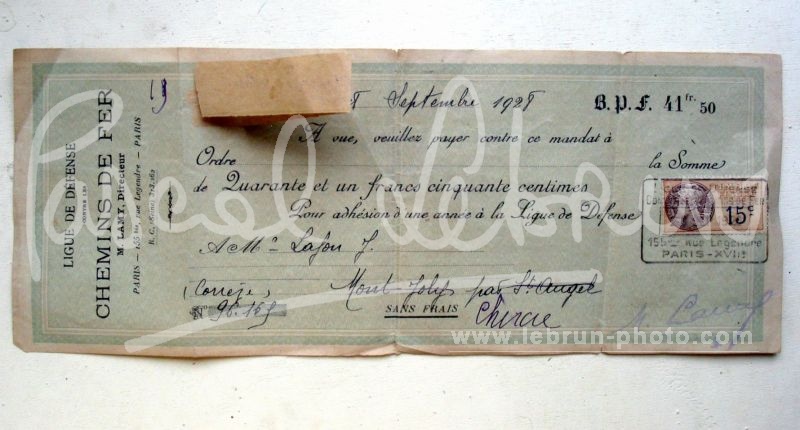 LIGUE DE DÉFENSE
CONTRE LES
CHEMINS DE FER
M. LAMY, Directeur
PARIS - 155bis, rue Legendre - PARIS
Septembre 1928
B. P. F. 41 fr. 50
A vue, veuillez payer contre ce mandat à
Ordre
la Somme
de Quarante et un francs cinquante centimes
Pour adhésion d'une année à la Ligue de Défense
15c
155bis, Rue Legendre
PARIS-XVII
A Mr Lafon J.
(Corrèze)
Mont Joly par St Angel
N° 96.159
SANS FRAIS
Pascal Lebrun
www.lebrun-photo.com